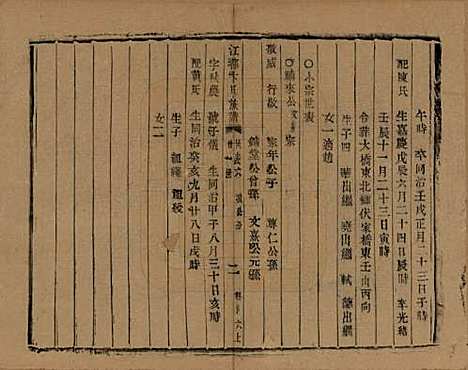 午時 卒同治壬戌正月二十三日子時
配陳氏 生嘉慶戊辰六月二十四日辰時 卒光緒
壬辰十一月二十三日寅時
合葬大橋東北鄉伏家橋東壬山丙向
生子四 出繼 堯出繼 出繼
女一適趙
○小宗世表
○鵬來公支 宗
敬威 行敬 宗年公子 尊仁公孫
錦堂公曾孫 文嘉公元孫
江都卞氏族譜
字 號子儀 生同治甲子八月三十日亥時
配黃氏 生同治癸亥九月廿八日戌時
生子 祖 祖授
女二